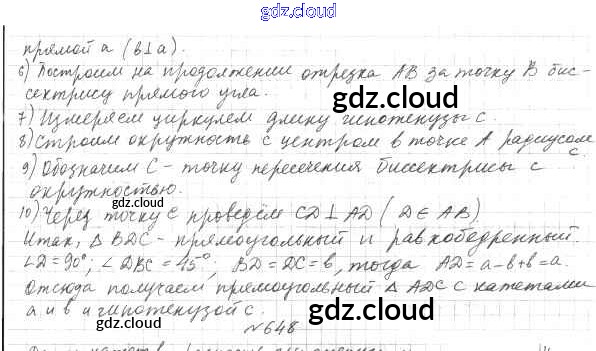 gdz.cloud
прямой a (b⊥a).
6) Построим на продолжении отрезка AB за точку B бис-
сектрису прямого угла.
gdz.cloud
7) Измеряем циркулем длину гипотенузы c.
8) Строим окружность с центром в точке A радиусом c
9) Обозначим C - точку пересечения биссектрисы с
окружностью.
gdz.cloud
gdz.cloud
10) Через точку C проведём CD⊥AD (D∈AB).
Итак, △BDC - прямоугольный и равнобедренный.
∠D=90°; ∠DBC=45°; BD=DC=b, тогда AD=a-b+b=a.
Отсюда получаем прямоугольный △ADC с катетами
a и b и гипотенузой c.
gdz.cloud
gdz.cloud
№648